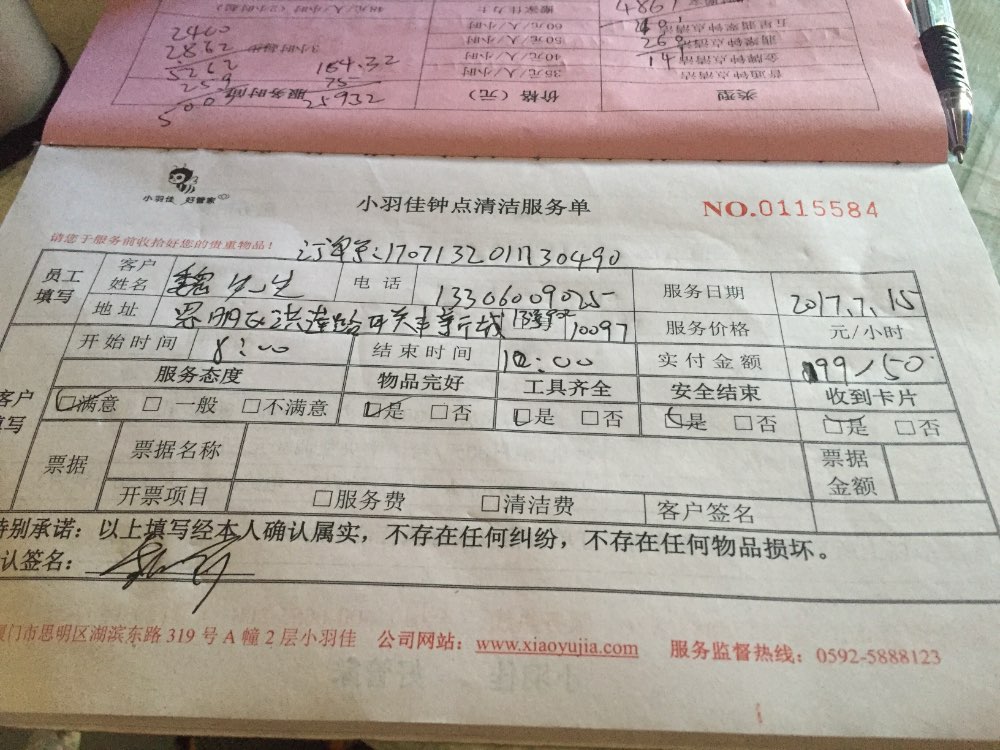 搬家佳力士 48元/人/小时 (2小时起)
五星钟点清洁 60元/人/小时
翡翠钟点清洁 50元/人/小时
金牌钟点清洁 40元/人/小时 3小时起步
普通钟点清洁 35元/人/小时
类型 价格（元） 服务时间
2400
2862
5262
259
164.32
75
25932
小羽佳 好管家
小羽佳钟点清洁服务单
NO.0115584
请您于服务前收拾好您的贵重物品！
订单号:170713201130490
员工填写 客户姓名 魏先生 电话 13306009025 服务日期 2017.7.15
地址 思明区洪莲路 10097 服务价格 元/小时
开始时间 8:00 结束时间 12:00 实付金额 199.50
服务态度 物品完好 工具齐全 安全结束 收到卡片
客户填写 □满意 □一般 □不满意 □是 □否 □是 □否 □是 □否 □是 □否
票据 票据名称 票据金额
开票项目 □服务费 □清洁费 客户签名
特别承诺：以上填写经本人确认属实，不存在任何纠纷，不存在任何物品损坏。
认签名：
厦门市思明区湖滨东路 319 号 A 幢 2 层小羽佳 公司网站：www.xiaoyujia.com 服务监督热线：0592-5888123